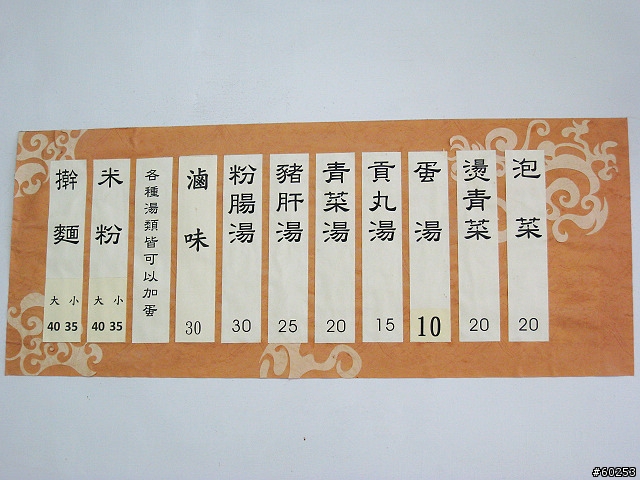 泡菜 20
燙青菜 20
蛋湯 10
貢丸湯 15
青菜湯 20
豬肝湯 25
粉腸湯 30
滷味 30
各種湯類皆可以加蛋
米粉 大 小 40 35
擀麵 大 小 40 35
#60253